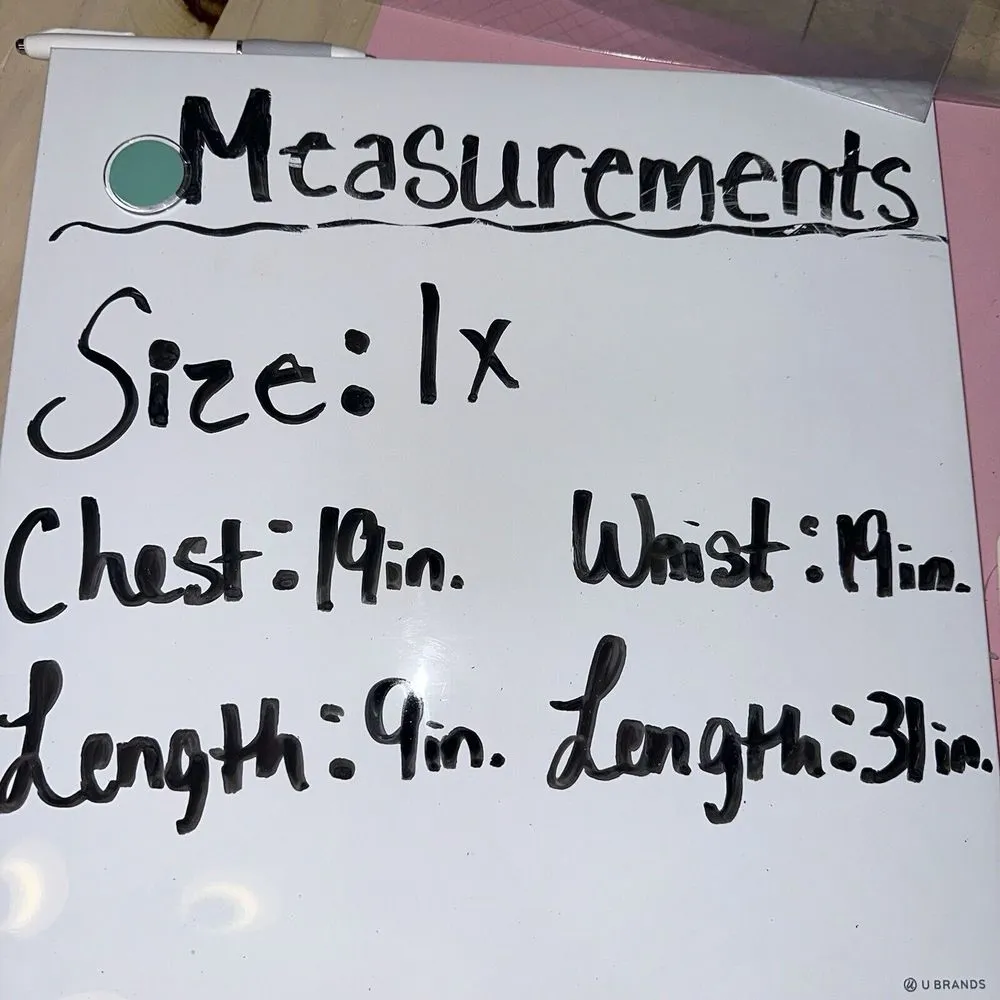 Measurements
Size: 1x
Chest: 19in. Waist: 19in.
Length: 9in. Length: 31in.
U BRANDS